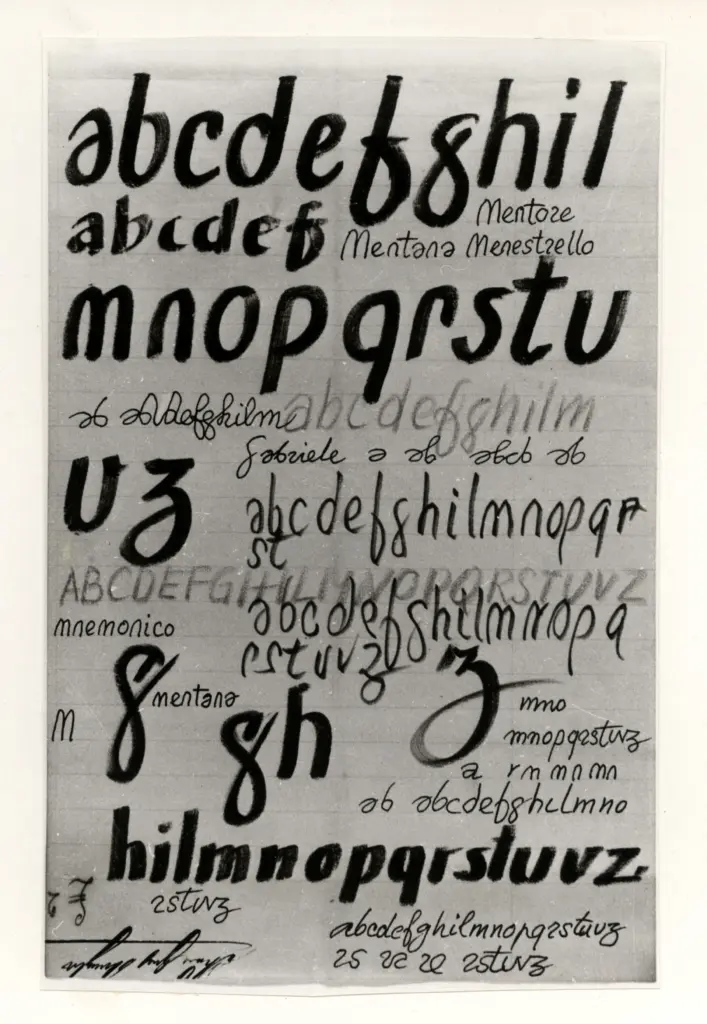 abcdefghil
abcdef
Mentore
Mentana Menestrello
mnopqrstu
ab abdefghilm
abcdefghilm
Gabriele a ab abcb ab
vz
abcdefghilmnopqr
st
ABCDEFGHILMNOPQRSTUVZ
abcdefghilmnopq
rstuvz
mnemonico
g
mentana
z
M
gh
mno
mnopqrstuvz
a rm mn mn
ab abcdefghilmno
hilmnopqrstuvz
rstuvz
abcdefghilmnopqrstuvz
rs
rstuvz